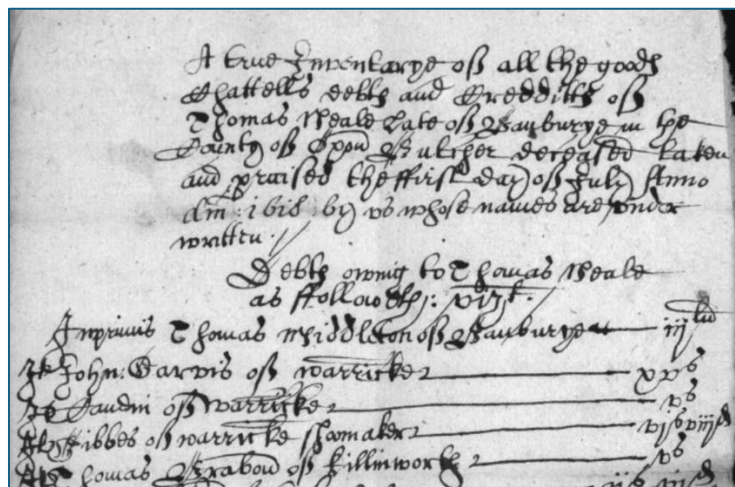 A true Inventarye off all the goods
Chattells debts and Credditts off
Thomas Weale Late off Banburye in the
County off Oxon Butcher deceased taken
and praised the ffirst day off July Anno
dm : by us whose names are under
written
Debts owing to Thomas Weale
as ffolloweth : vizt.
Inprimis Thomas Middleton off Banburye iij li
It John Jarvis off warricke xxs
It off warricke vs
It Gibbes off warricke shomaker vjs viijd
It Thomas Brabon off killinworth vs